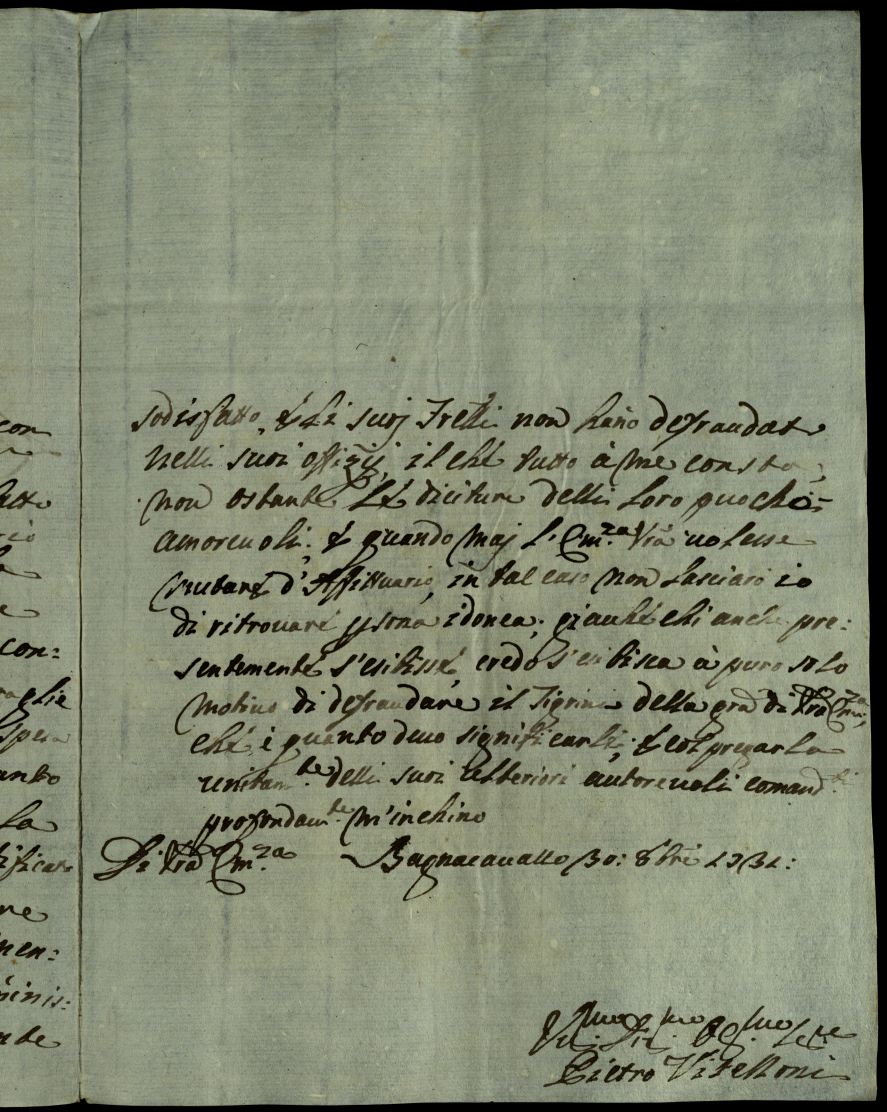 con
sodisfatto, & Li suoj Frelli non hano defraudato
nelli suoi offizij, il ché tutto à me consta,
non ostante Le diciture delli Loro puocho=
amorevoli; & quando maj L'Em.za Vrã volesse
mutare d'Affittuario, in tal caso non Lasciarò io
di ritrovare psona idonea; giaché chi anche pre:
con:
sentemente s'esibisse, credo s'esibisca à puro solo
motivo di defraudare il Sigrini della gra di Vrã Em.za
ché è quanto devo significarli; & col pregarLa
anto
unitam.te delli suoi ulteriori autorevoli comand.ti
La
profondam.te m'inchino
Di Vrã Em.za Bagnacavallo 30: 8bre 1731:
ne
men:
minis:
nte
Pietro Vitelloni